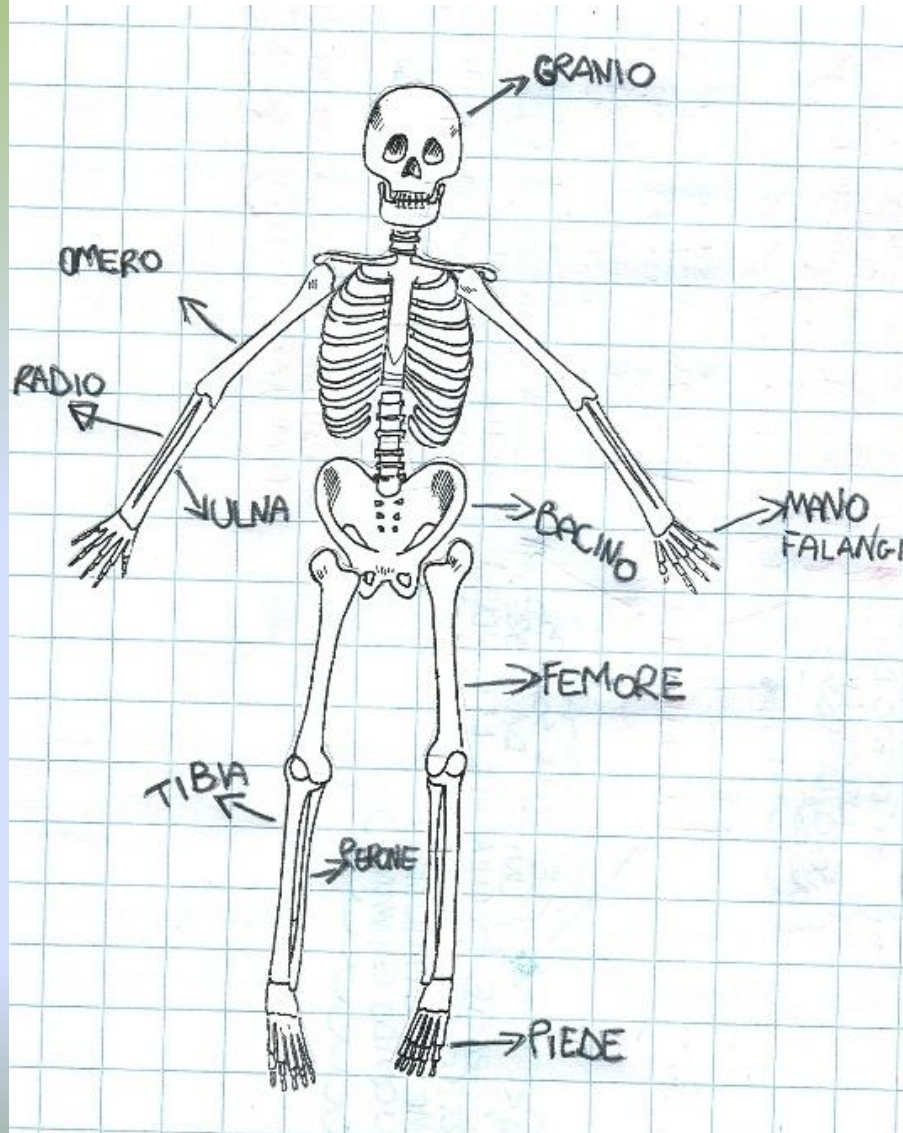 GRANIO
OMERO
RADIO
ULNA
BACINO
MANO
FALANGI
FEMORE
TIBIA
PERONE
PIEDE